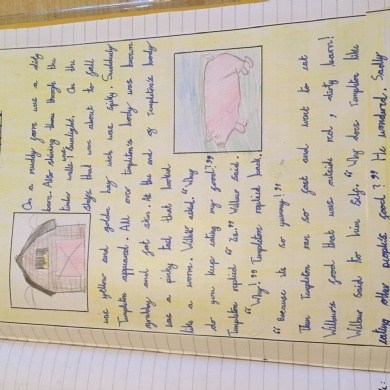 On a muddy farm was a dity
barn. Also shining threw through the
tinber walls was Sunlight. On the
stage that was about to fall
was yellow and golden hay wich was spiky. Suddenly
Templton appeared. All over templton's body was brown
grubby and soft skin. At the end of Templeton's body
was a pinky tail that looked
like a worm. Wilbur asked. "Why
do you keep eating my food?"
Templton replied "Yes." Wilbur Said.
"Why!?" Templtone replied back.
"Because its so yummy!"
Then Templton ran so fast and went to eat
Wilburs food that was outside red, dirty barn!
Wilbur Said to him Self. "Why does Templton like
eating other people's food?" He wondered. Sadly